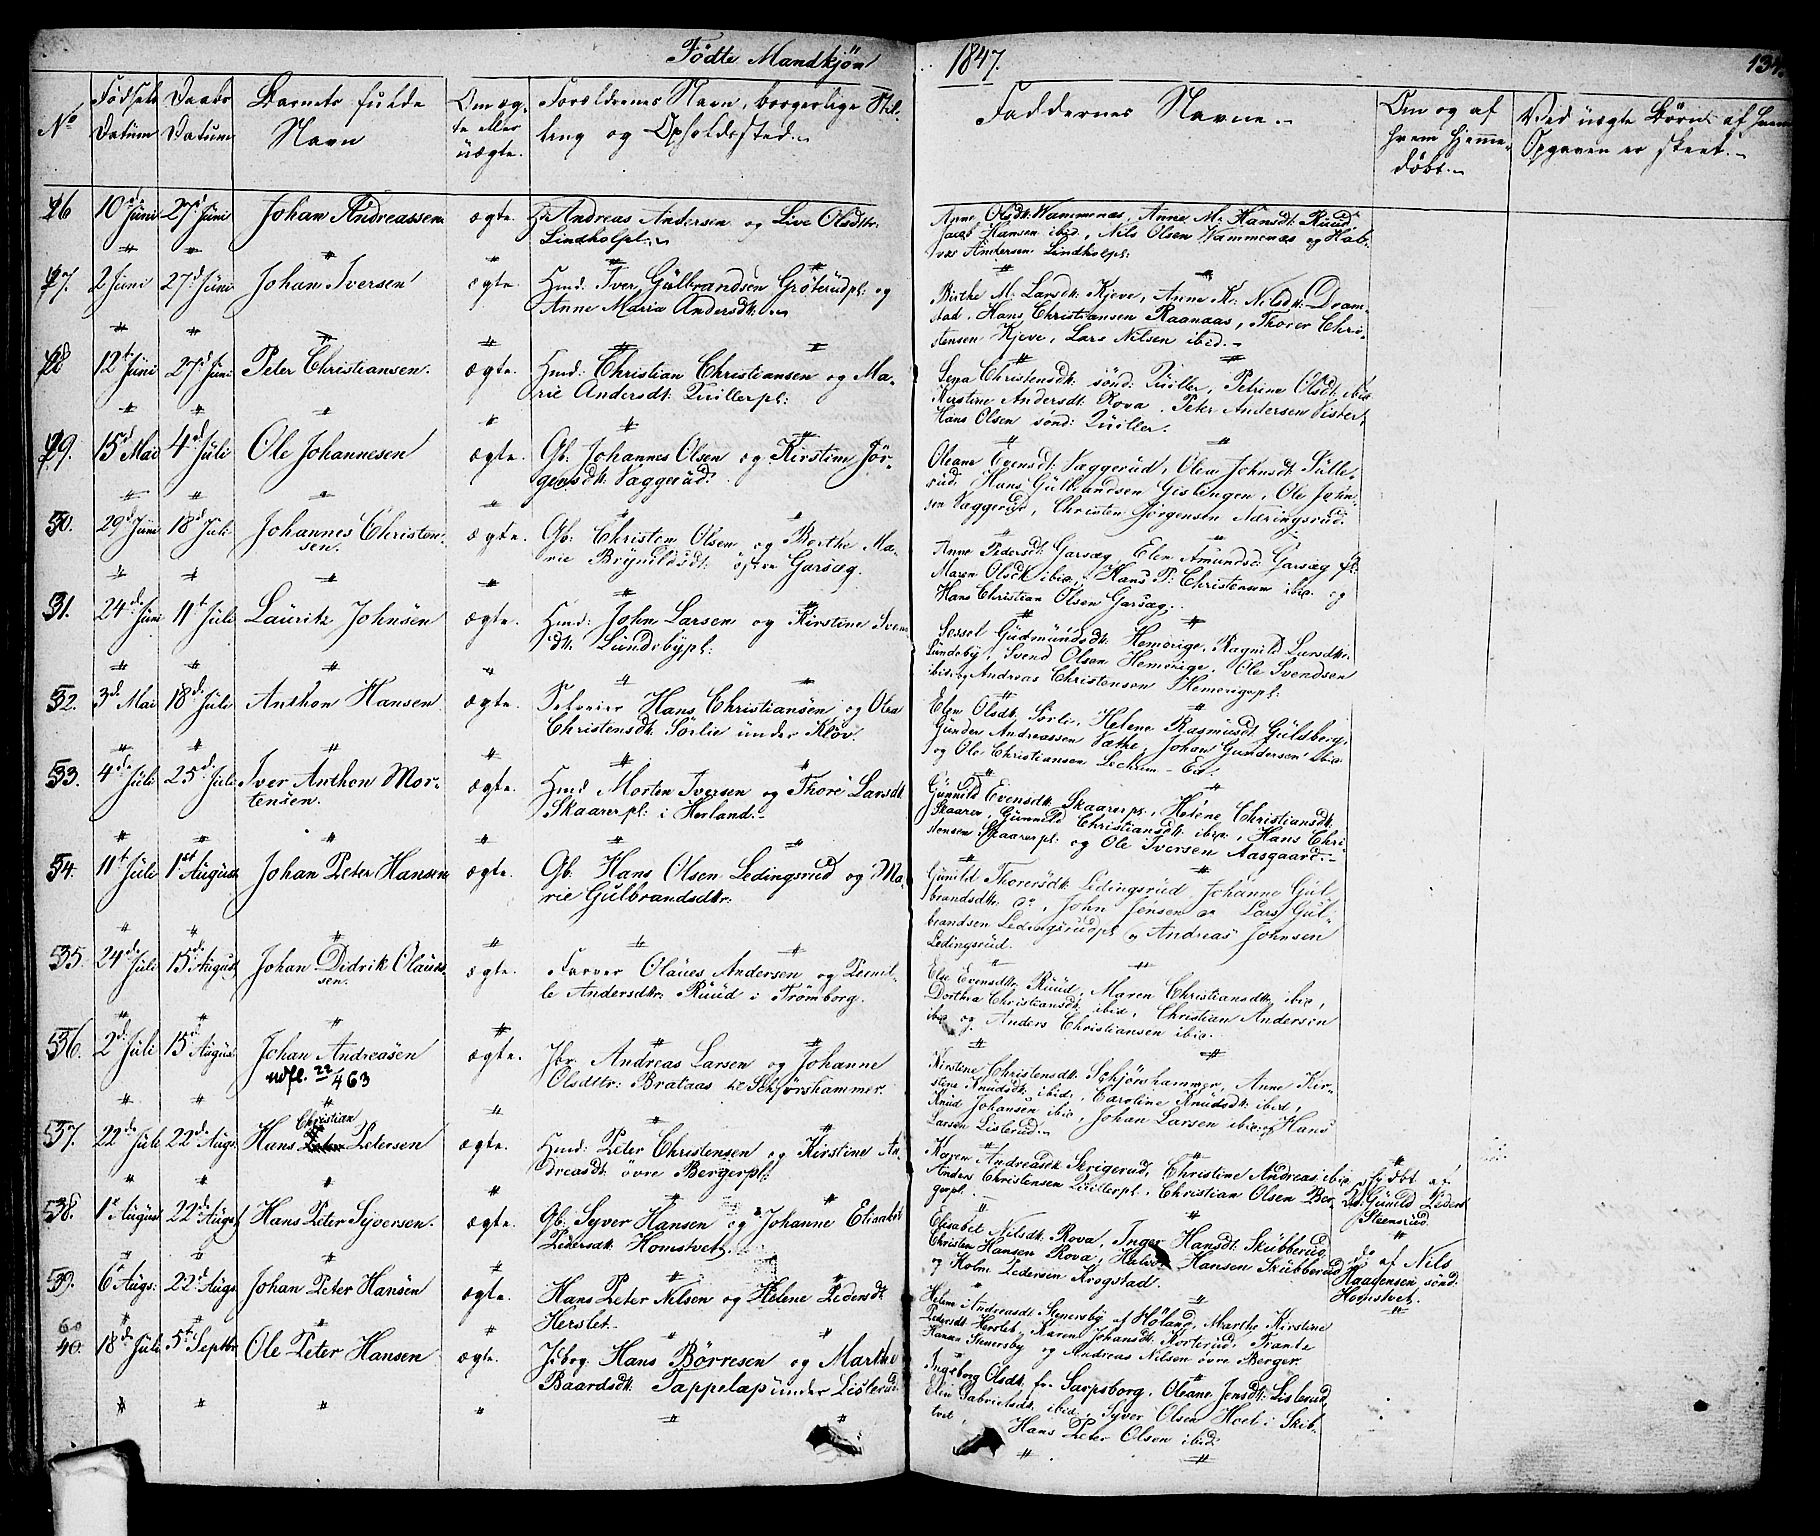 Födte Mandkjön 1847. 134.
No
Födsels Datum
Daabs Datum
Barnets fulde Navn
Om ægte eller uægte.
Forældrenes Navn, borgerlige Stilling og Opholdssted.
Faddernes Navne.
Om og af hvem hjemmedöbt.
Ved uægte Börn af hvem Opgaven er skeet.
26 10d Juni 27d Juni Johan Andreassen ægte. Andreas Andersen og Live Olsdtr:
Lindholpl:
Anne Olsdt: Wammenæs, Anne M: Hansdt: Ruud
Jacob Hansen ibid, Nils Olsen Wammenæs og Hal-
vor Andersen Lindholpl:
27. 2 Juni 27d Juni Johan Iversen ægte. Hmd: Iver Gulbrandsen Gröterudpl: og
Anne Maria Andersdt:
Birthe M: Larsdt: Kjeve, Anne K: Nilsdt: Dram-
stad, Hans Christiansen Raanaas, Thorer Chri-
stensen Kjeve, Lars Nilsen ibid.
28 12t Juni 27d Juni Peter Christiansen. ægte. Hmd: Christian Christiansen og Ma-
rie Andersdt: Qvillerpl:
Lena Christensdt: sönd: Qviller, Petrine Olsdt: ibid
Kirstine Andersdt: Rova, Peter Andersen Vister,
Hans Olsen sönd: Qviller.
29. 15d Mai 4d Juli Ole Johannesen ægte. Gb: Johannes Olsen og Kirstine Jör-
gensdt: Væggerud.
Oleane Evensdt: Væggerud, Olea Johnsdt: Sulle-
rud, Hans Gulbrandsen Gislingen, Ole John-
sen Væggerud, Christen Jörgensen Næringsrud.
30. 29d Juni 18d Juli Johannes Christen-
sen. ægte. Gb: Christen Olsen og Berthe Ma-
rie Brynildsdt: östre Garsæg.
Anne Pedersdt: Garsæg, Elen Amundsd Garsæg
Maren Olsdt: ibid, Hans P: Christensen ibid og
Hans Christian Olsen Garsæg.
31. 24d Juni 11t Juli Lauritz Johnsen ægte. Hmd: John Larsen og Kirstine Svens
dt: Lundebypl:
Sessel Gudmundsdt: Hemerige, Ragnild Larsdtr:
Lundeby, Svend Olsen Hemerige, Ole Svendsen
ibid og Andreas Christensen Hemerigepl:
32. 3d Mai 18d Juli Anthon Hansen ægte. Selveier Hans Christiansen og Olea
Christensdt: Sörlie under Klöv
Elen Olsdt: Sörli, Helene Rasmusdt Gulsberg,
Gunder Andreassen Væthe, Johan Gundersen ibid
og Ole Christiansen Lechum-Eie.
33. 4d Juli 25d Juli Iver Anthon Mor-
tensen. ægte. Hmd Morten Iversen og Thore Larsdt
Skaarerpl: i Herland.
Gunnild Evensdt: Skaarerpl., Helene Christiansdt:
Skaarer, Gunnild Christiansdt. ibid., Hans Chri-
stensen Skaarerpl: og Ole Iversen Aasgaard.
34. 11t Juli 1st August Johan Peter Hansen ægte. Gb. Hans Olsen Ledingsrud og Ma-
rie Gulbrandsdtr:
Gunild Thorersdt: Ledingsrud Johanne Gul-
brandsdtr: do, John Jensen do Lars Gul-
brandsen Ledingsrudpl og Andreas Johnsen
Ledingsrud.
35. 24d Juli 15d August Johan Didrik Olaus-
sen. ægte. Farver Olaues Andersen og Pernil-
le Andersdtr: Ruud i Trömborg.
Else Evensdtr: Ruud, Maren Christiansdt: ibid,
Dorthea Christiansdt ibid, Christian Andersen
ibid og Anders Christiansen ibid.
36. 2d Juli 15d August Johan Andreasen
udfl. 22/463 ægte. Jbr: Andreas Larsen og Johanne
Olsdttr: Brataas Schjörshammer.
Kirstine Christensdt: Schjörshammer, Anne Kir-
stine Knudsdt: ibid, Caroline Knudsdt: ibid,
Knud Johansen ibid, Johan Larsen ibid og Hans
Larsen Listerud.
37. 22d Juli 22d Augs Hans Christian Petersen ægte. Hmd: Peter Christensen og Kirstine An-
dreasdt: övre Bergerpl:
Karen Andreasdt: Skrigerud, Christine Andreas: ibid,
Anders Christensen Qvillerpl:, Christian Olsen Ber-
gerpl.
hjdöbt af Gunild Peders
Steensrud.
38. 1st August 22d August Hans Peter Syversen. ægte. Gb: Syver Hansen og Johanne Elisabet
Pedersdt: Homstvet.
Elisabet Nilsdt: Rova, Inger Hansdt: Skubberud,
Christen Hansen Rova, Halvor Hansen Skubberud
og Holm Pedersen Krogstad.
do af Nils
Haagensen sönd.
Homstvet.
39. 6t Augs: 22d Augs Johan Peter Hansen ægte. Hans Peter Nilsen og Helene Pedersdt
Herslet.
Helene Andreasdt: Stenersby af Höland, Marthe Kirstine
Pedersdt Herslet, Karen Johansdt: Korterud, Frants
Hansen Stenersby og Andreas Nilsen övre Berger.
60
40. 18d Juli 5t Septbr Ole Peter Hansen. ægte. Jbbrg: Hans Börresen og Marthe
Baardsdt: Tappelap under Listerud.
Ingeborg Olsdt: fr. Sarpsborg, Oleane Jensdt: Listerud,
Elen Gabrielsdt: ibid, Syver Olsen Hoel i Skib-
tvet,
Hans Peter Olsen ibid.